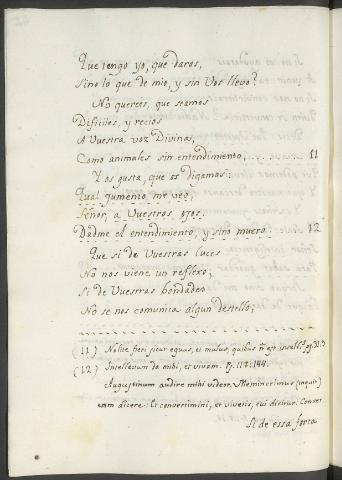 Que tengo yo, que daros,
Sino lo que de mio, y sin Vos llevo?
No quereis, que seamos
Dificiles, y recios
A Vuestra voz Divina,
Como animales sin entendimiento, 11
Y os gusta, que os digamos:
Qual jumento me veo,
Señor, a Vuestros ojos:
Dadme el entendimiento, y sino muero. 12
Que si de Vuestras luces
No nos viene un reflexo;
Si de Vuestras bondades
No se nos comunica algun destello;
(11) Nolite fieri sicut equus, et mulus, quibus ñ est intell.s
(12) Intellectum da mihi, et vivam. Ps. 118. 144.
Augustinum audire mihi videor. Meminerimus (inquit)
eum dicere: Et convertimini, et vivetis, cui dicitur: Conver
Si de essa forta